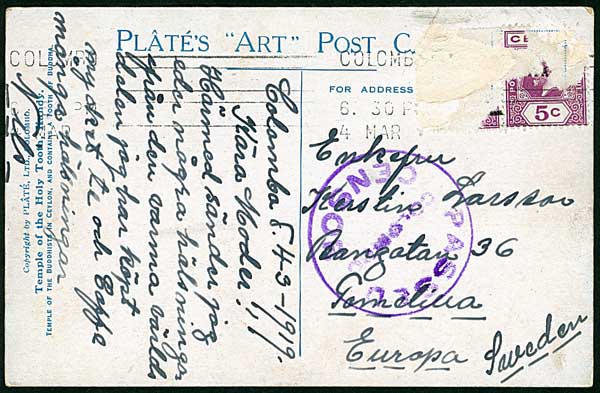 PLÂTÉ'S "ART" POST C
COLOMB
COLOMB
6. 30 P
4 MAR
FOR ADDRESS
5C
Colombo 5-4-3-1919.
Kära Moder!,
Härmed sänder jag
eder några hälsningar
från den varma världs
delen jag har köpt
mycket te och
många hälsningar
Copyright by PLÂTÉ, LTD., COLOMBO.
Temple of the Holy Tooth, Kandy.
TEMPLE OF THE BUDDHISTS IN CEYLON, AND CONTAINS A TOOTH OF BUDDHA.
PASSED
CENSOR
COLOMBO
Enkefru
Kerstin Larsson
Rangatan 36
Tomelilla
Europa
Sweden